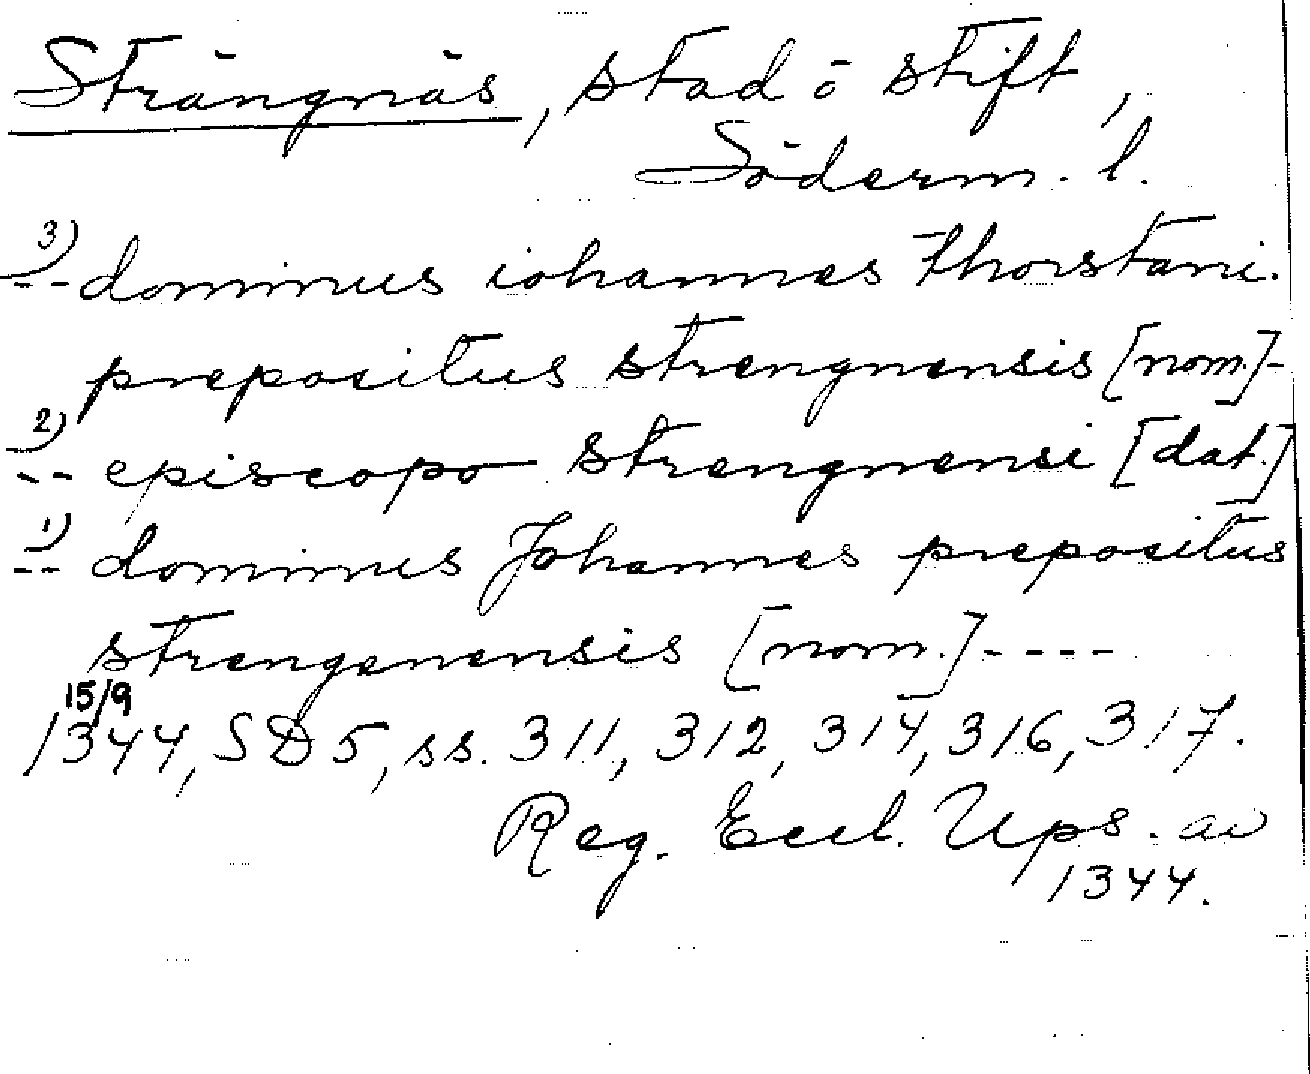 Strängnäs, stad o stift,
Söderm. l.
3)
-- dominus iohannes thorstani.
prepositus strengnensis [nom.]-
2)
-- episcopo strengnensi [dat.]
1)
-- dominus Johannes prepositus
strengenensis [nom.]----
15/9
1344, SD 5, ss. 311, 312, 314, 316, 317.
Reg. Eccl. Ups. av
1344.